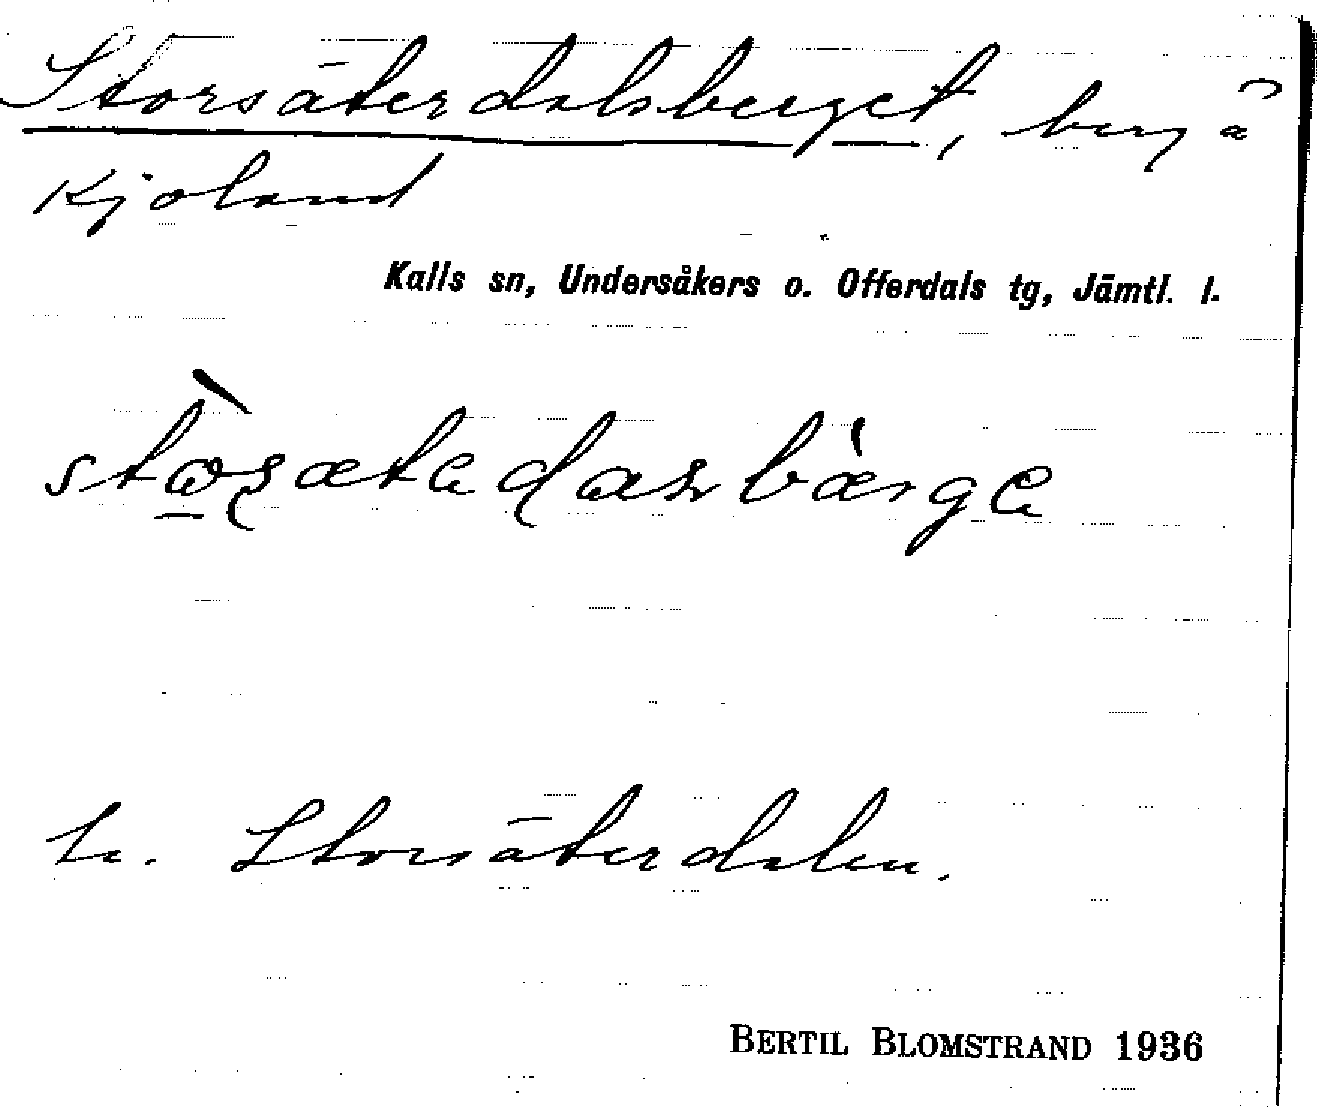 Storsäterdalsberget, berg å
Kjoland
Kalls sn, Undersåkers o. Offerdals tg, Jämtl. l.
t. Storsäterdalen.
BERTIL BLOMSTRAND 1936